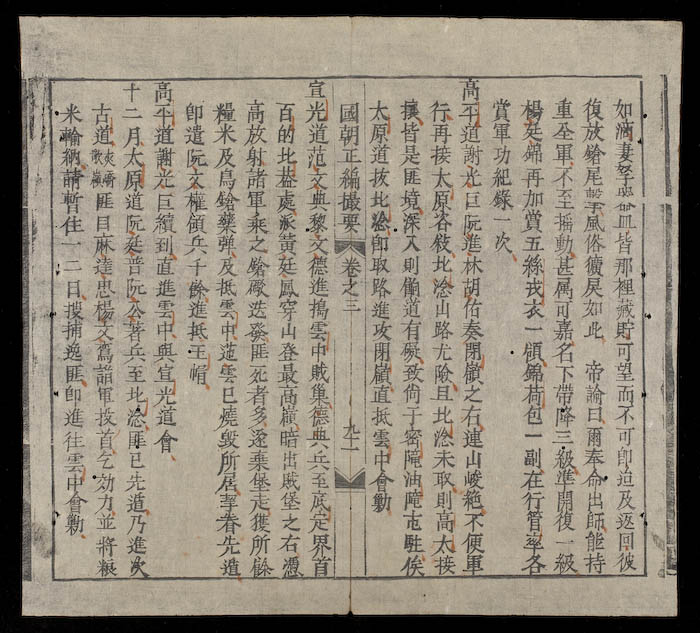 如滿妻孥器皿皆那裡藏貯可望而不可即迨及返回彼
復放鎗尾擊風俗獷戾如此　帝諭曰爾奉命出師能持
重全軍不至搖動甚属可嘉名下帶降三級準開復一級
楊廷錦再加賞五絲戎衣一領錦荷包一副在行管率各
賞軍功紀錄一次
高平道謝光巨阮進林胡佑奏閉嶺之右連山峻絶不便軍
行再接太原咨敘比淰山路尤險且比淰未取則高太接
攘皆是匪境深入則餉道有礙致尙于密庵油庵屯駐俟
太原道拔比淰即取路進攻閉嶺直抵雲中會勦
國朝正編撮要　卷之三　九十一
宣光道范文典黎文德進搗雲中賊巢德典兵至底定界首
百的比㙮處派黄廷風穿山登最高嶺暗出賊堡之右憑
高放射諸軍乘之鎗礮迭發匪死者多遂棄堡走獲所餘
糧米及鳥鎗藥弹及抵雲中范雲已燒毀所居挈眷先遁
卽遣阮文權領兵千餘進抵玉帽
高平道謝光巨續到直進雲中與宣光道會
十二月太原道阮廷普阮公著兵至比淰匪已先遁乃進次
古道夾喬散嶺匪目麻達忠楊文篤詣軍投首乞効力並將粮
米輸納請暫住一二日搜捕逸匪即進往雲中會勦